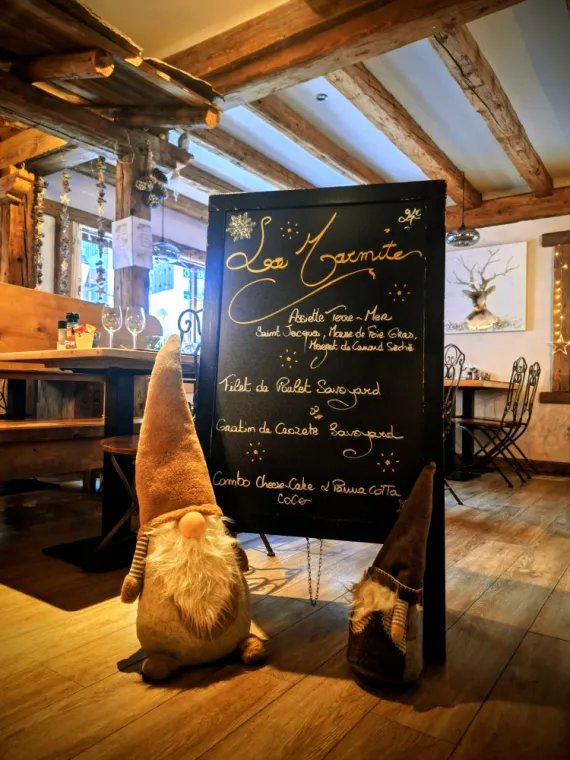 La Marmite
24€
Assiette Terre-Mer
Saint Jacques, Marre de Foie Gras,
Magret de Canard Séché
Filet de Poulet Savoyard
&
Gratin de Crozets Savoyard
Combo Cheese-Cake & Panna Cotta
Coco